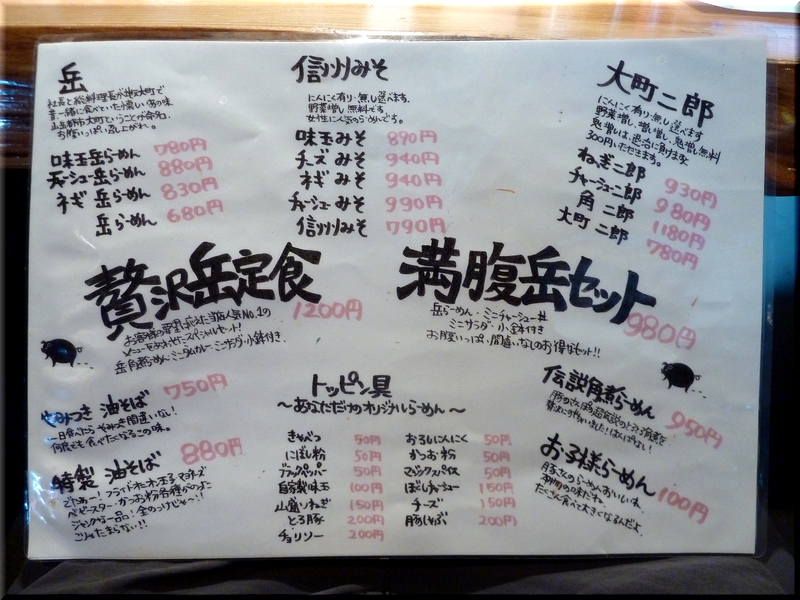 岳
社長と総料理長が
昔一緒に食べていた懐しいあの味
山岳都市大町ということが命名。
お腹いっぱい召し上がれ。
味玉岳らーめん 780円
チャーシュー岳らーめん 880円
ネギ岳らーめん 830円
岳らーめん 680円
信州みそ
にんにく有り・無し選べます。
野菜増し無料です。
女性に人気のらーめんです。
味玉みそ 890円
チーズみそ 940円
ネギみそ 940円
チャーシューみそ 990円
信州みそ 790円
大町二郎
にんにく有り・無し選べます
野菜増し、増し増し、鬼増し無料
鬼増しは、退治に負けますと
300円いただきます。
ねぎ二郎 930円
チャーシュー二郎 980円
角二郎 1180円
大町二郎 780円
贅沢岳定食 1200円
お客様の要望に応えた当店人気No.1の
メニューを合わせたスペシャルセット!
岳角煮らーめん・ミニタムカレー・ミニサラダ・小鉢付き.
満腹岳セット 980円
岳らーめん・ミニチャーシュー丼
ミニサラダ・小鉢付き
お腹いっぱい間違いなしのお得なセット!!
やみつき油そば 750円
一日食べたらやみつき間違いない!
何度でも食べたくなるこの味。
特製油そば 880円
でたぁー!フライドオニオン玉子マヨネーズ
ベビースターかつお粉各種がのった
ジャンクな一品!全のっけじゃ〜!!
こりゃたまらない!!
トッピン具
〜あなただけのオリジナルらーめん〜
きゃべつ 50円
にぼし粉 50円
ブラックペッパー 50円
自家製味玉 100円
山盛りねぎ 150円
とろ豚 200円
チョリソー 200円
おろしにんにく 50円
かつお粉 50円
マジックスパイス 50円
ほぐしチャーシュー 150円
チーズ 150円
豚しゃぶ 200円
伝説角煮らーめん 950円
豚のさん
贅沢に
お子様らーめん 100円
豚さんのらーめんおいしいね
たくさん食べて大きくなるんだよ